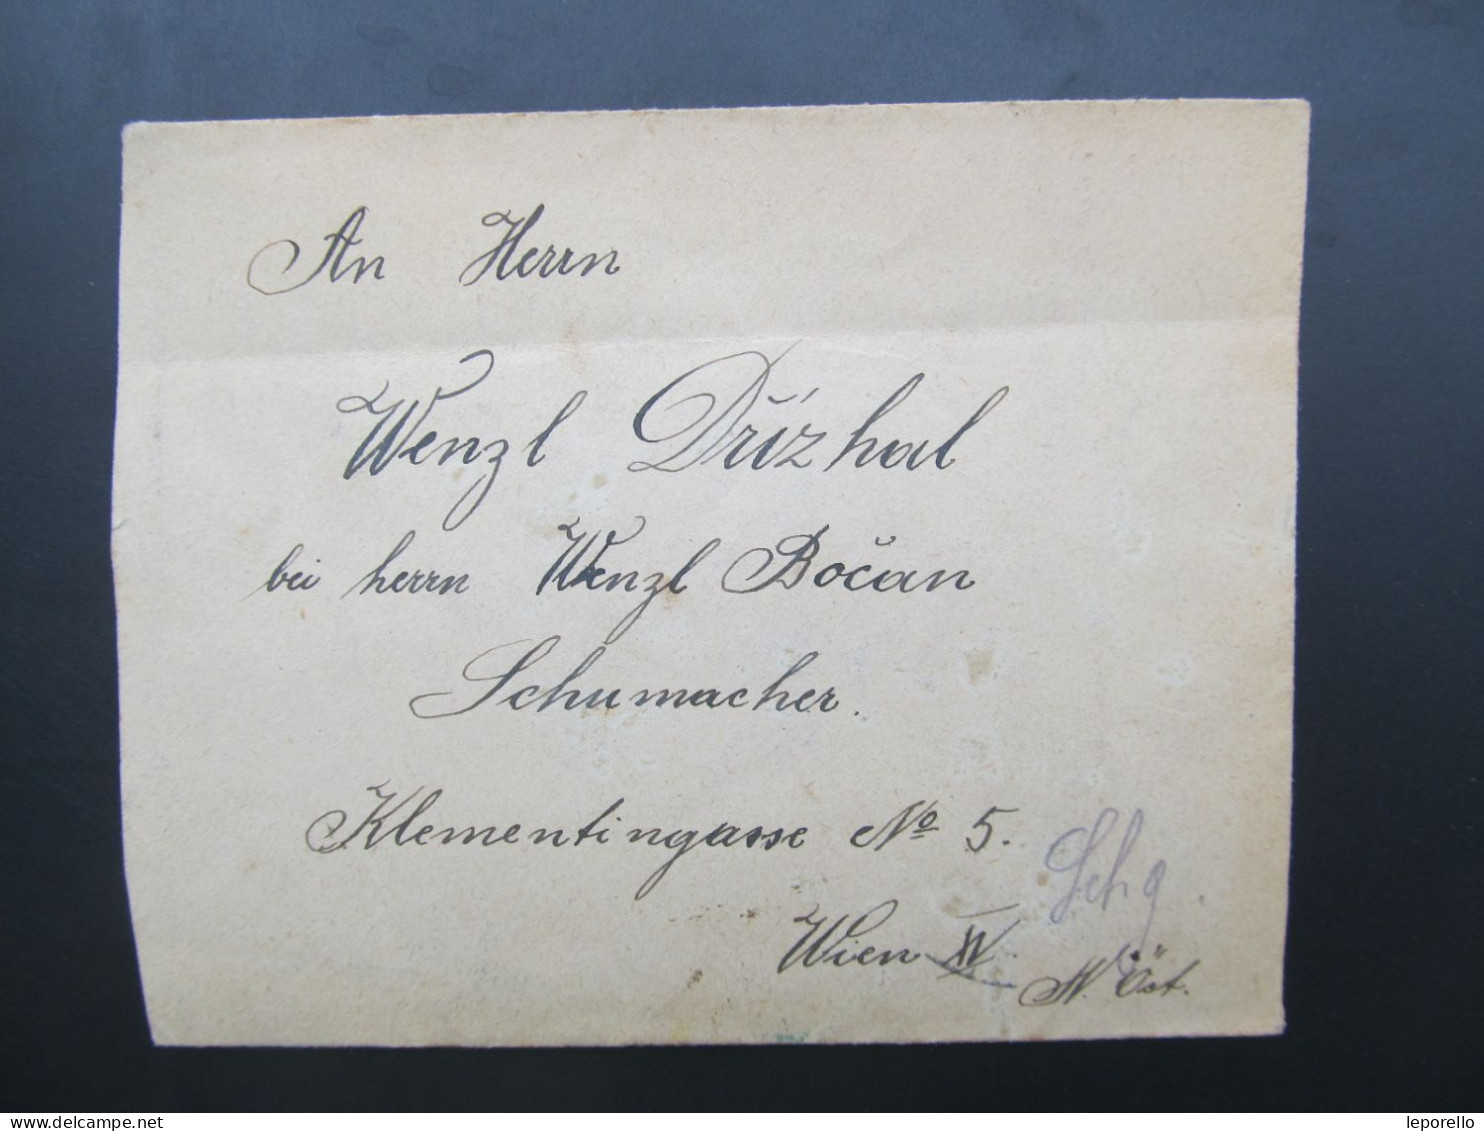 An Herrn
Wenzl Dřízhal
bei herrn Wenzl Bočan
Schumacher.
Klementingasse No 5.
Schg
Wien XV.
N. Öst.
leporello